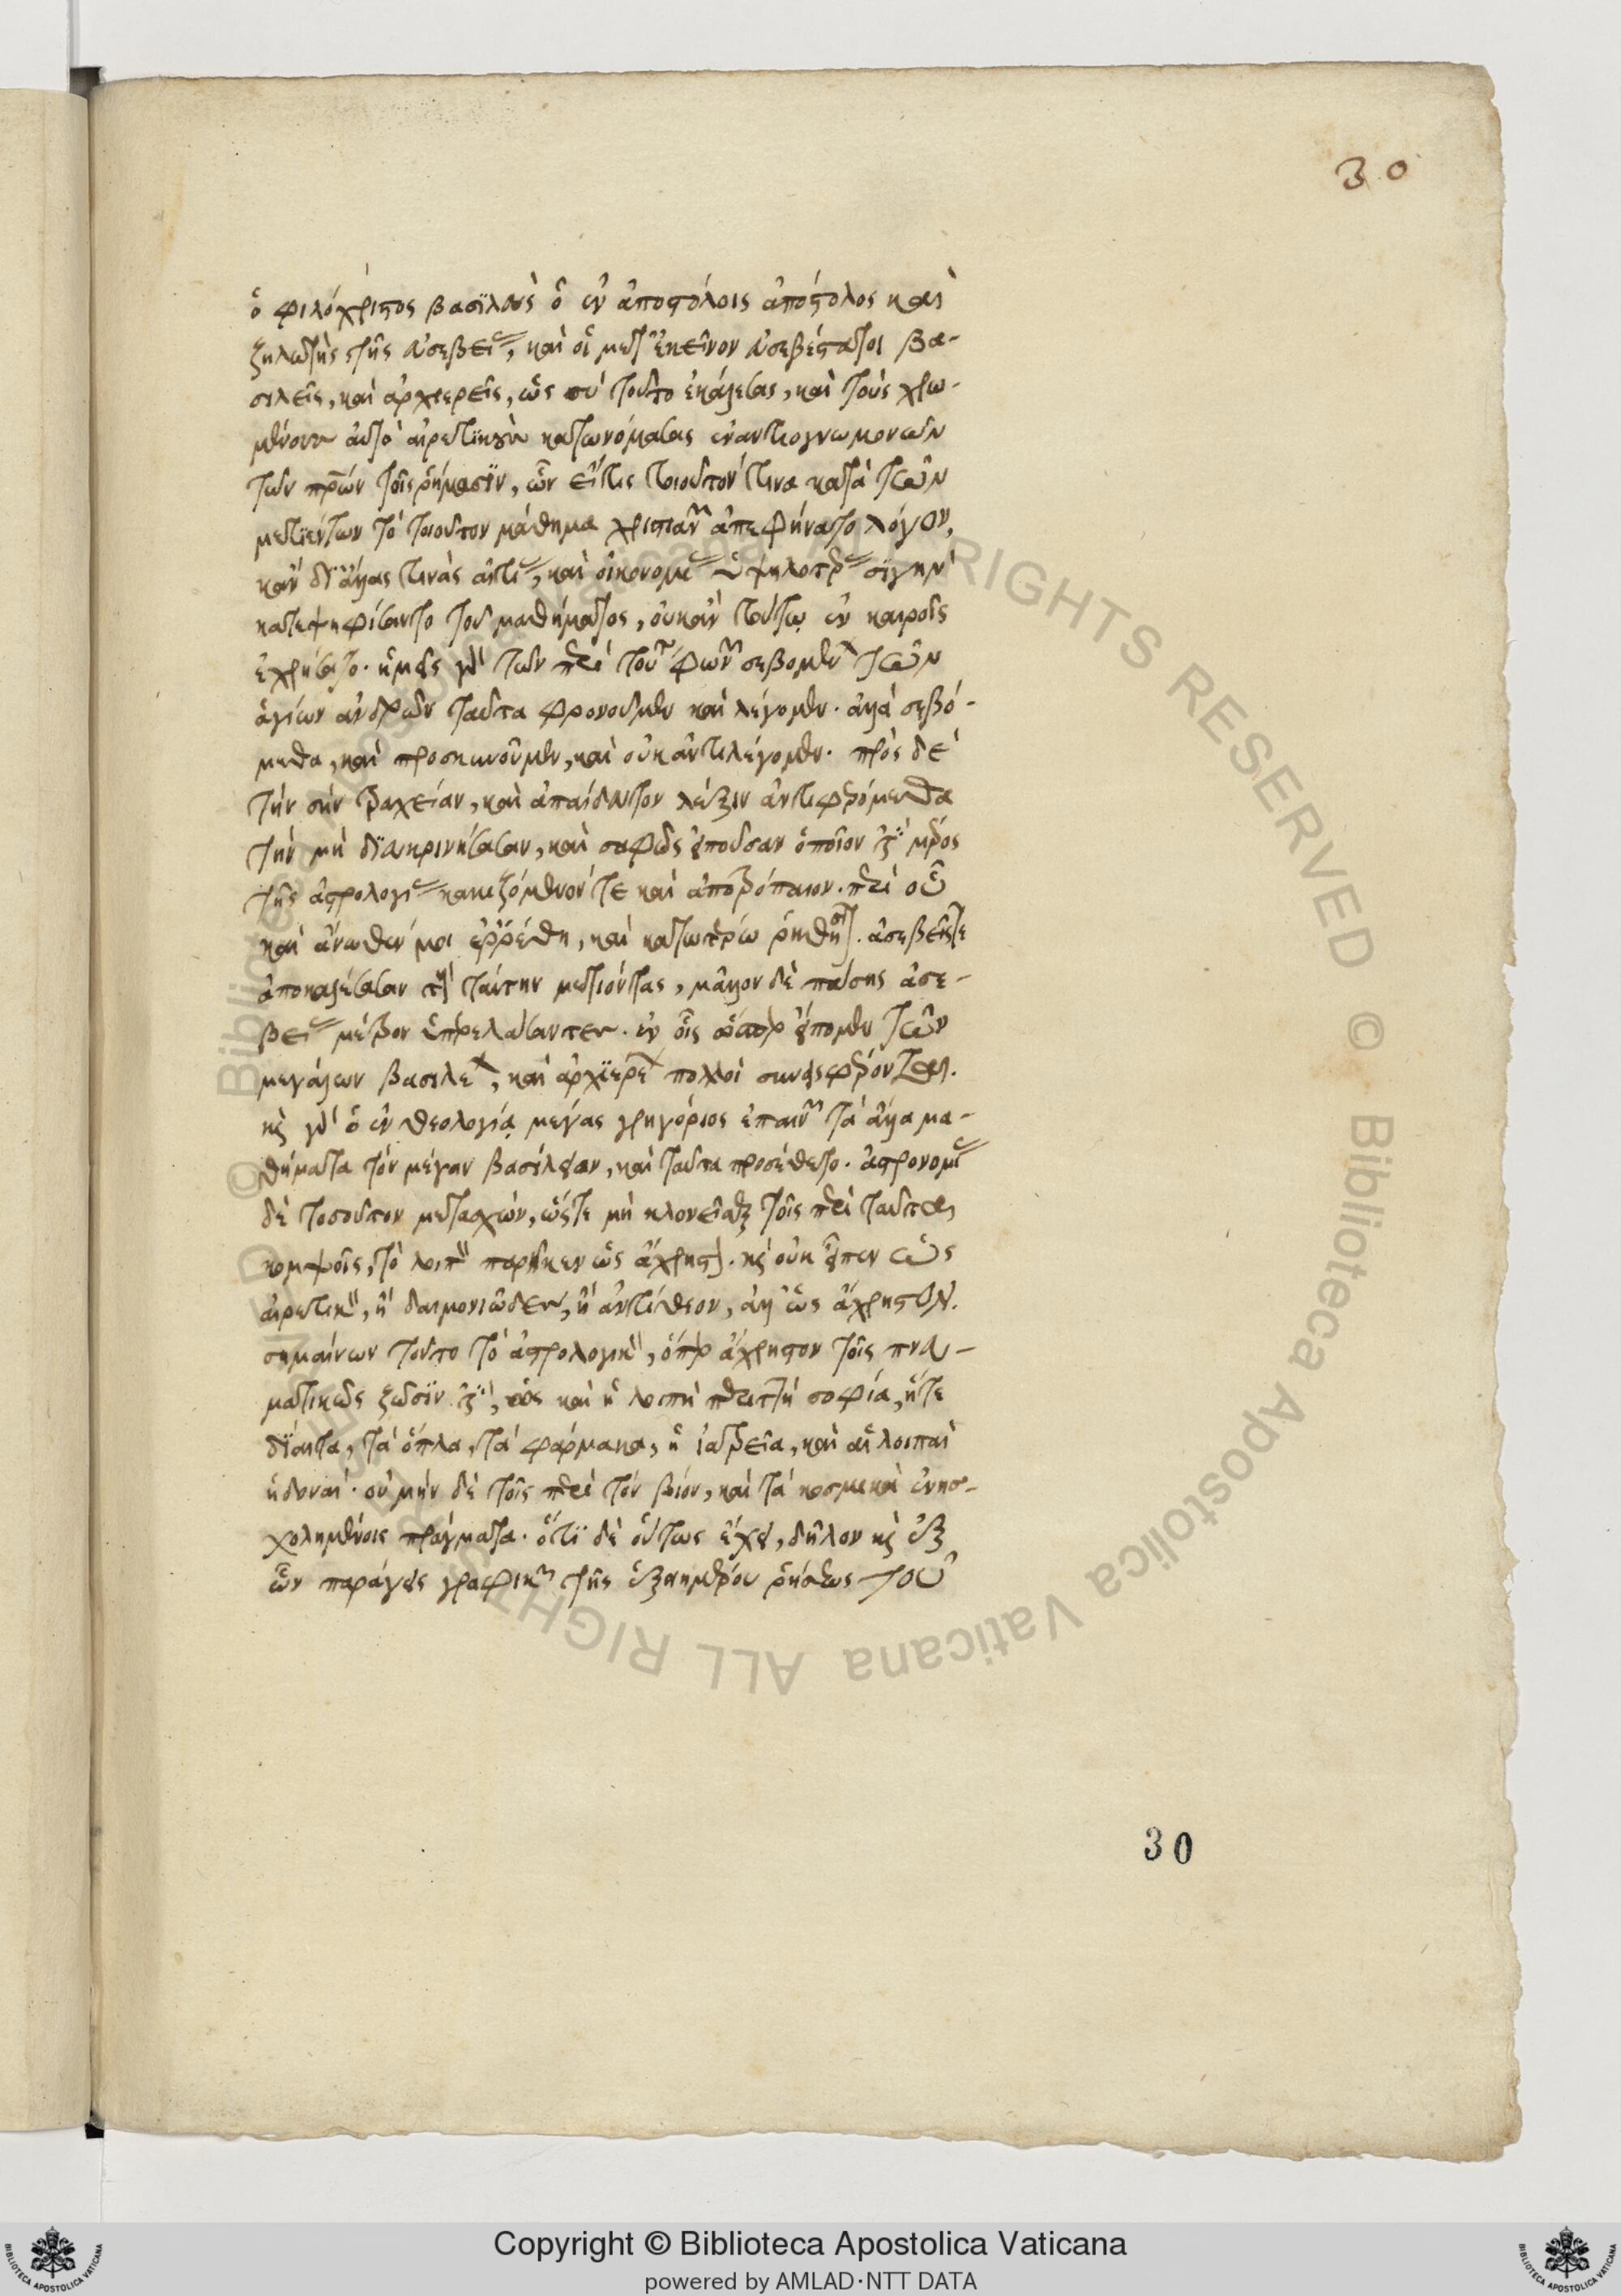 30
ὁ φιλόχριστος βασϊλεὺς ὁ ἐν ἀποστόλοις ἀπόστολος καὶ
ζηλωτὴς τῆς εὐσεβεί, καὶ οἱ μετ' ἐκεῖνον εὐσεβέστατοι βα-
σιλεῖς, καὶ ἀρχιερεῖς, ὡς σὺ τοῦτο ἐκάλεσας, καὶ τοὺς χρω-
μένους αὐτὸ αἱρετϊκοὺς κατωνόμασας ἐναντιογνωμονῶν
τῶν πρῶν τοῖς ῥήμασϊν, ὧν εἴ τις τοιοῦτόν τινα κατὰ τῶν
μετϊέντων τὸ τοιοῦτον μάθημα χριστιαν ἀπεφήνατο λόγον,
κἂν δι' ἄλλας τινὰς αἰτί, καὶ οἰκονομί ὑψηλοτέρ σϊγὴν
κατεψηφίσαντο τοῦ μαθήματος, οὐκ ἂν τούτῳ ἐν καιροῖς
ἐχρήσατο. ἡμεῖς γὰρ τῶν περὶ τούτ φων σεβομεν τῶν
ἁγίων ἀνδρῶν ταῦτα φρονοῦμεν καὶ λέγομεν. ἀλλὰ σεβό-
μεθα, καὶ προσκυνοῦμεν, καὶ οὐκ ἀντιλέγομεν. πρὸς δὲ
τὴν σὴν τραχεῖαν, καὶ ἀπαίδευτον λέξιν ἀντιφερόμεθα
τὴν μὴ δϊευκρινήσασαν, καὶ σαφῶς εἰποῦσαν ὁποῖον ἐστὶ μέρος
τῆς ἀστρολογί κακιζόμενόν τε καὶ ἀποτρόπαιον. περὶ οὗ
καὶ ἄνωθέν μοι ἐρρέθη, καὶ κατωτέρω ῥηθήσεται. ἀσεβεῖς τε
ἀποκαλέσασαν τοὺς ταύτην μετιόντας, μᾶλλον δὲ πάσης ἀσε-
βεί μέτρον ὑπερελάσαντες. ἐν οἷς ὥσπερ εἴπομεν τῶν
μεγάλων βασιλέ, καὶ ἀρχϊερέ πολλοὶ συνεισφέρονται.
κὶ γὰρ ὁ ἐν θεολογίᾳ μέγας γρηγόριος ἐπαιν τὰ ἄλλα μα-
θήματα τὸν μέγαν βασίλειον, καὶ ταῦτα προσέθετο. ἀστρονομί
δὲ τοσοῦτον μετασχών, ὥστε μὴ κλονεῖσθαι τοῖς περὶ ταῦτα
κομψοῖς, τὸ λοιπὸν παρῆκεν ὡς ἄχρηστ. κὶ οὐκ εἶπεν ὡς
αἱρετικὸν, ἢ δαιμονιῶδες, ἢ ἀντίθεον, ἀλλ' ὡς ἄχρηστον.
σημαίνων τοῦτο τὸ ἀστρολογικὸν, ὅπερ ἄχρηστον τοῖς πνευ-
ματικῶς ζῶσϊν ἐστὶ, ὡς καὶ ἡ λοιπὴ περιττὴ σοφία, ἥ τε
δίαιτα, τὰ ὅπλα, τὰ φάρμακα, ἡ ἰατρεία, καὶ αἱ λοιπαὶ
ἡδοναί. οὐ μὴν δὲ τοῖς περὶ τὸν βίον, καὶ τὰ κοσμικὰ ἐνησ-
χολημένοις πράγματα. ὅτϊ δὲ οὕτως ἔχει, δῆλον κὶ ἐξ
ὧν παράγεις γραφικ τῆς ἑξαημέρου ῥήσεως τοῦ
30
© Biblioteca Apostolica Vaticana ALL RIGHTS RESERVED
Copyright © Biblioteca Apostolica Vaticana
powered by AMLAD·NTT DATA